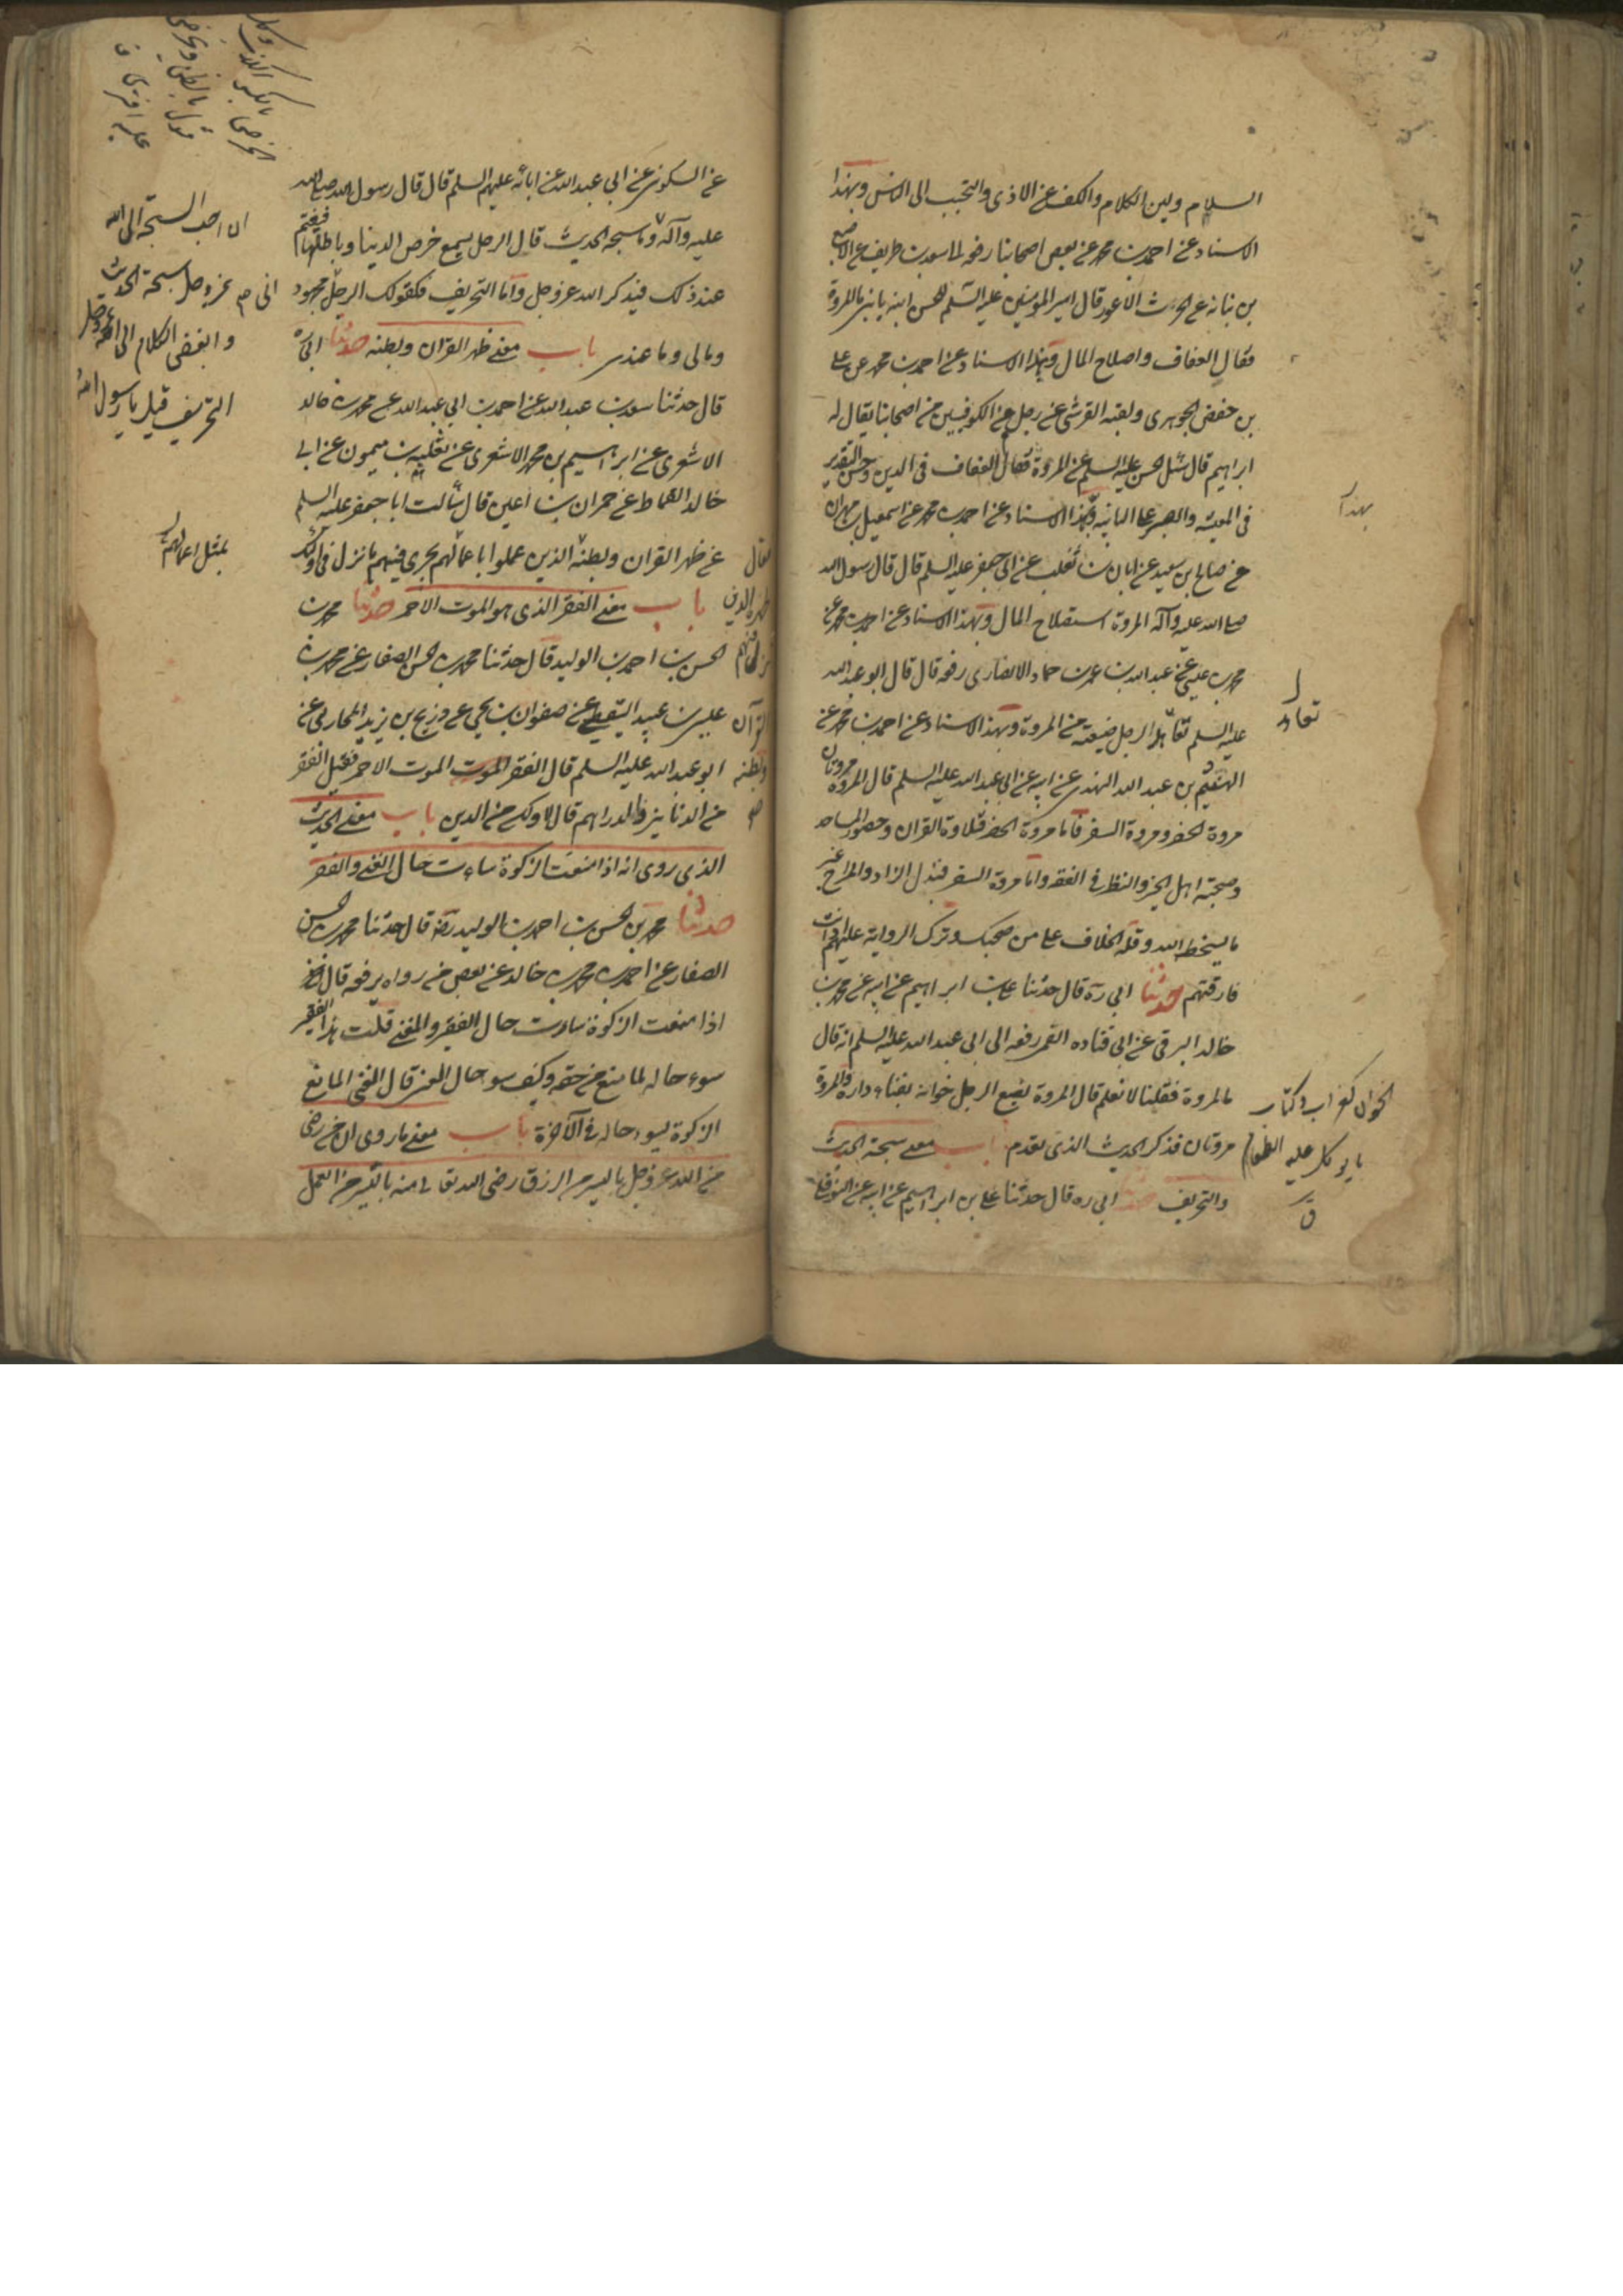 السلام ولين الكلام والكف عن الاذى والتحبب الى الناس وبهذا
الاسناد عن احمد بن محمد عن بعض اصحابنا رفعه الى سعد بن طريف عن الاصبغ
بن نباته عن الحرث الاعور قال امير المؤمنين عليه السلم للحسن ابنه يا بنى ما المروة
فقال العفاف واصلاح المال وبهذا الاسناد عن احمد بن محمد عن على
بن حفص الجوهرى ولقبه القرشى عن رجل من الكوفيين من اصحابنا يقال له
ابراهيم قال سئل الحسن عليه السلم عن المروة فقال العفاف فى الدين وحسن التقدير
فى المعيشة والصبر على النائبة وبهذا الاسناد عن احمد بن محمد عن اسمعيل بن مهران
بهذا
عن صالح بن سعيد عن ابان بن تغلب عن ابى جعفر عليه السلم قال قال رسول الله
صلى الله عليه وآله المروة استصلاح المال وبهذا الاسناد عن احمد بن محمد عن
محمد بن عيسى عن عبد الله بن عمر بن حماد الانصارى رفعه قال قال ابو عبد الله
عليه السلم تعاهد الرجل ضيعته من المروة وبهذا الاسناد عن احمد بن محمد عن
تعاهد
الهيثم بن عبد الله النهدى عن ابيه عن ابى عبد الله عليه السلم قال المروة مروتان
مروة الحضر ومروة السفر فاما مروة الحضر فتلاوة القران وحضور المساجد
وصحبة اهل الخير والنظر فى الفقه واما مروة السفر فبذل الزاد والمزاح فى غير
ما يسخط الله وقلة الخلاف على من صحبك وترك الرواية عليهم اذا انت
فارقتهم حدثنا ابى ره قال حدثنا على بن ابراهيم عن ابيه عن محمد بن
خالد البرقى عن ابى قتاده القمى رفعه الى ابى عبد الله عليه السلم انه قال
ما المروة فقلنا لا نعلم قال المروة يضع الرجل خوانه بفناء داره والمروة
الخوان كغراب وكتاب
ما يوكل عليه الطعام
ق
مروتان فذكر الحديث الذى تقدم باب معنى سبحة الحديث
والتحريف حدثنا ابى ره قال حدثنا على بن ابراهيم عن ابيه عن النوفلى
عن السكونى عن ابى عبد الله عن ابائه عليهم السلم قال قال رسول الله صلى الله
ان احب السبحة الى الله
عز وجل سبحة الحديث
وابغض الكلام الى الله عز وجل
التحريف قيل يا رسول الله
عليه وآله وما سبحة الحديث قال الرجل يسمع حرص الدنيا وباطلها فيغتم
عند ذلك فيذكر الله عز وجل واما التحريف فكقولك الرجل مجهود
ومالى وما عندى باب معنى ظهر القران وبطنه حدثنا ابى ره
قال حدثنا سعد بن عبد الله عن احمد بن ابى عبد الله عن محمد بن خالد
الاشعرى عن ابراهيم بن محمد الاشعرى عن ثعلبه بن ميمون عن ابى
خالد القماط عن حمران بن اعين قال سألت ابا جعفر عليه السلم
عن ظهر القران وبطنه الذين عملوا باعمالهم يجرى فيهم ما نزل فى اولئك
بمثل اعمالهم
فقال
ظهره الذين
نزل فيهم
القرآن
وبطنه
باب معنى الفقر الذى هو الموت الاحمر حدثنا محمد بن
الحسن بن احمد بن الوليد قال حدثنا محمد بن الحسن الصفار عن محمد بن
عيسى بن عبيد اليقطينى عن صفوان بن يحيى عن ذريح بن يزيد المحاربى عن
ابو عبد الله عليه السلم قال الفقر الموت الموت الاحمر فقيل الفقر
من الدنانير والدراهم قال لا ولكن من الدين باب معنى الحديث
الذى روى انه اذا منعت الزكوة ساءت حال الغنى والفقر
حدثنا محمد بن الحسن بن احمد بن الوليد قال حدثنا محمد بن الحسن
الصفار عن احمد بن محمد بن خالد عن بعض من رواه يرفعه قال
اذا منعت الزكوة ساءت حال الفقير والغنى قلت هذا الفقير
سوء حاله لما منع من حقه وكيف سوء حال الغنى قال الغنى المانع
الزكوة يسوء حاله فى الآخرة باب معنى ما روى ان من رضى
من الله عز وجل باليسير من الرزق رضى الله تعالى منه باليسير من العمل